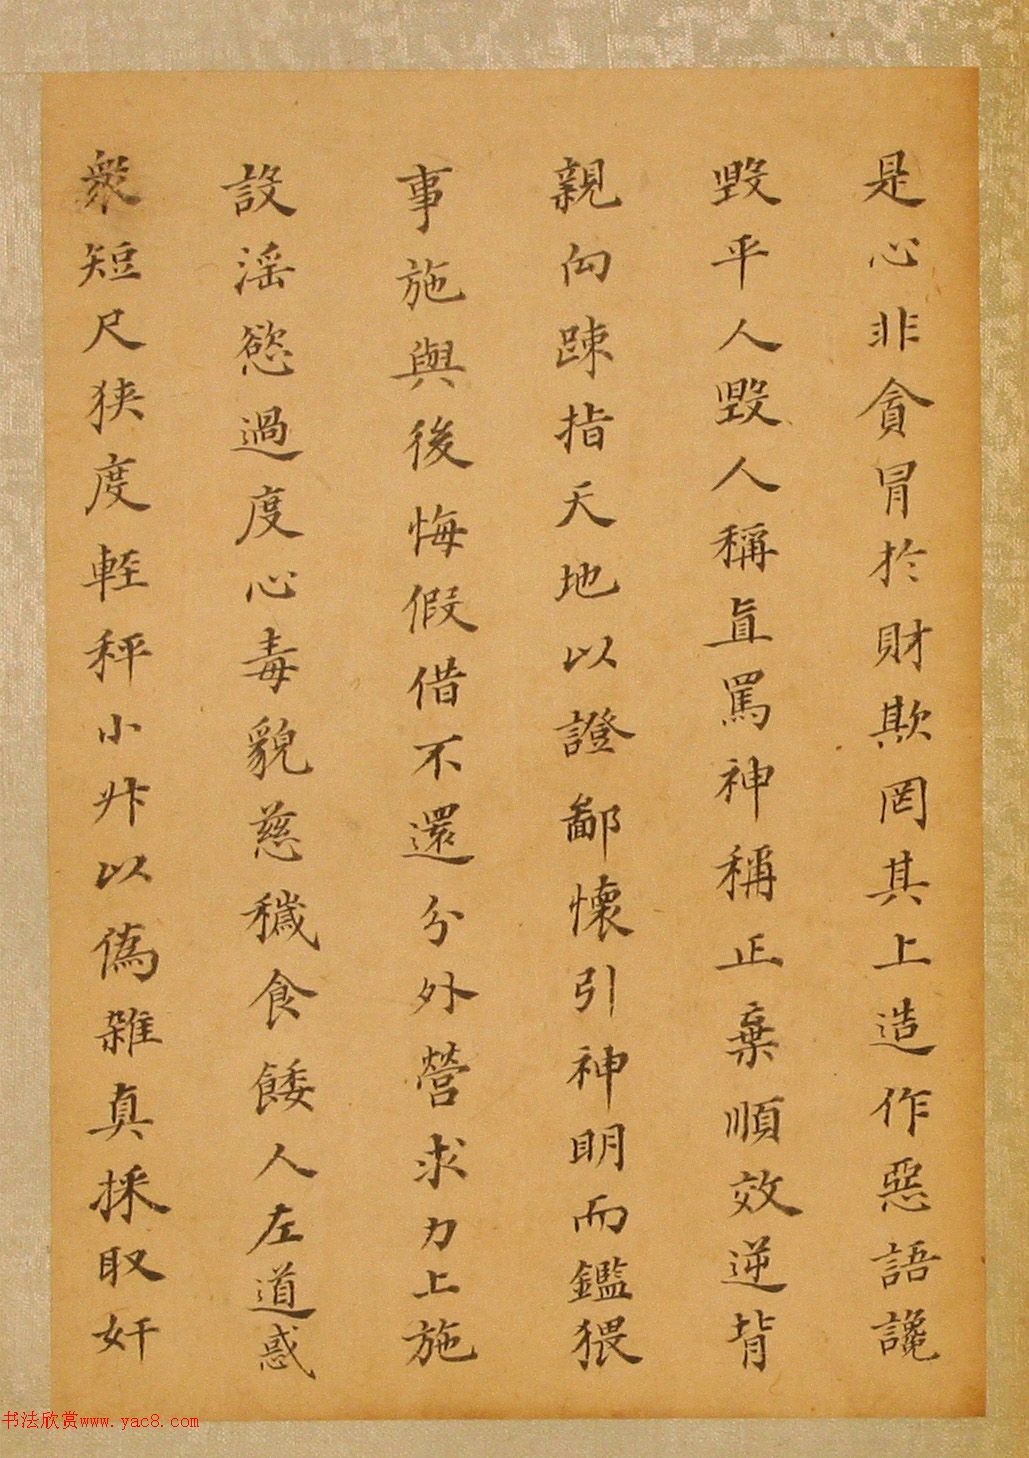 是心非貪冒於財欺罔其上造作惡語讒
毀平人毀人稱直罵神稱正棄順效逆背
親向踈指天地以證鄙懷引神明而鑑猥
事施與後悔假借不還分外營求力上施
設淫慾過度心毒貌慈穢食餧人左道惑
衆短尺狹度輕秤小升以偽雜真採取奸
书法欣赏www.yac8.com